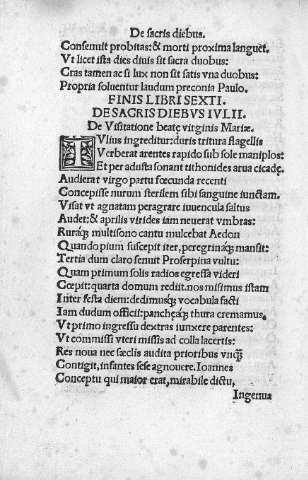 De sacris diebus.
Consenuit probitas: & morti proxima languet.
Vt licet ista dies diuis sit sacra duobus:
Cras tamen ac si lux non sit satis vna duobus:
Propria soluentur laudum preconia Paulo.
FINIS LIBRI SEXTI.
DE SACRIS DIEBVS IVLII.
De Visitatione beatę virginis Mariæ.
IVlius ingreditur: duris tritura flagellis
Verberat arentes rapido sub sole maniplos:
Et per adusta sonant tithonides arua cicadę.
Audierat virgo partu fœcunda recenti
Concepisse nurum sterilem sibi sanguine iunctam.
Visat vt agnatam peragrare iuuencula saltus
Audet: & aprilis virides iam neuerat vmbras:
Ruraq; multisono cantu mulcebat Aedon
Quando pium suscepit iter, peregrinaq; mansit:
Tertia dum claro senuit Proserpina vultu:
Quam primum solis radios egressa videri
Cœpit: quarta domum rediit. nos missimus istam
Inter festa diem: dedimusq; vocabula facti
Iam dudum officii: panchęaq; thura cremamus.
Vt primo ingressu dextras iunxere parentes:
Vt commissi vteri missis ad colla lacertis:
Res noua nec sæclis audita prioribus vnq̃
Contigit, infantes sese agnouere. Ioannes
Conceptu qui maior erat, mirabile dictu,
Ingenua